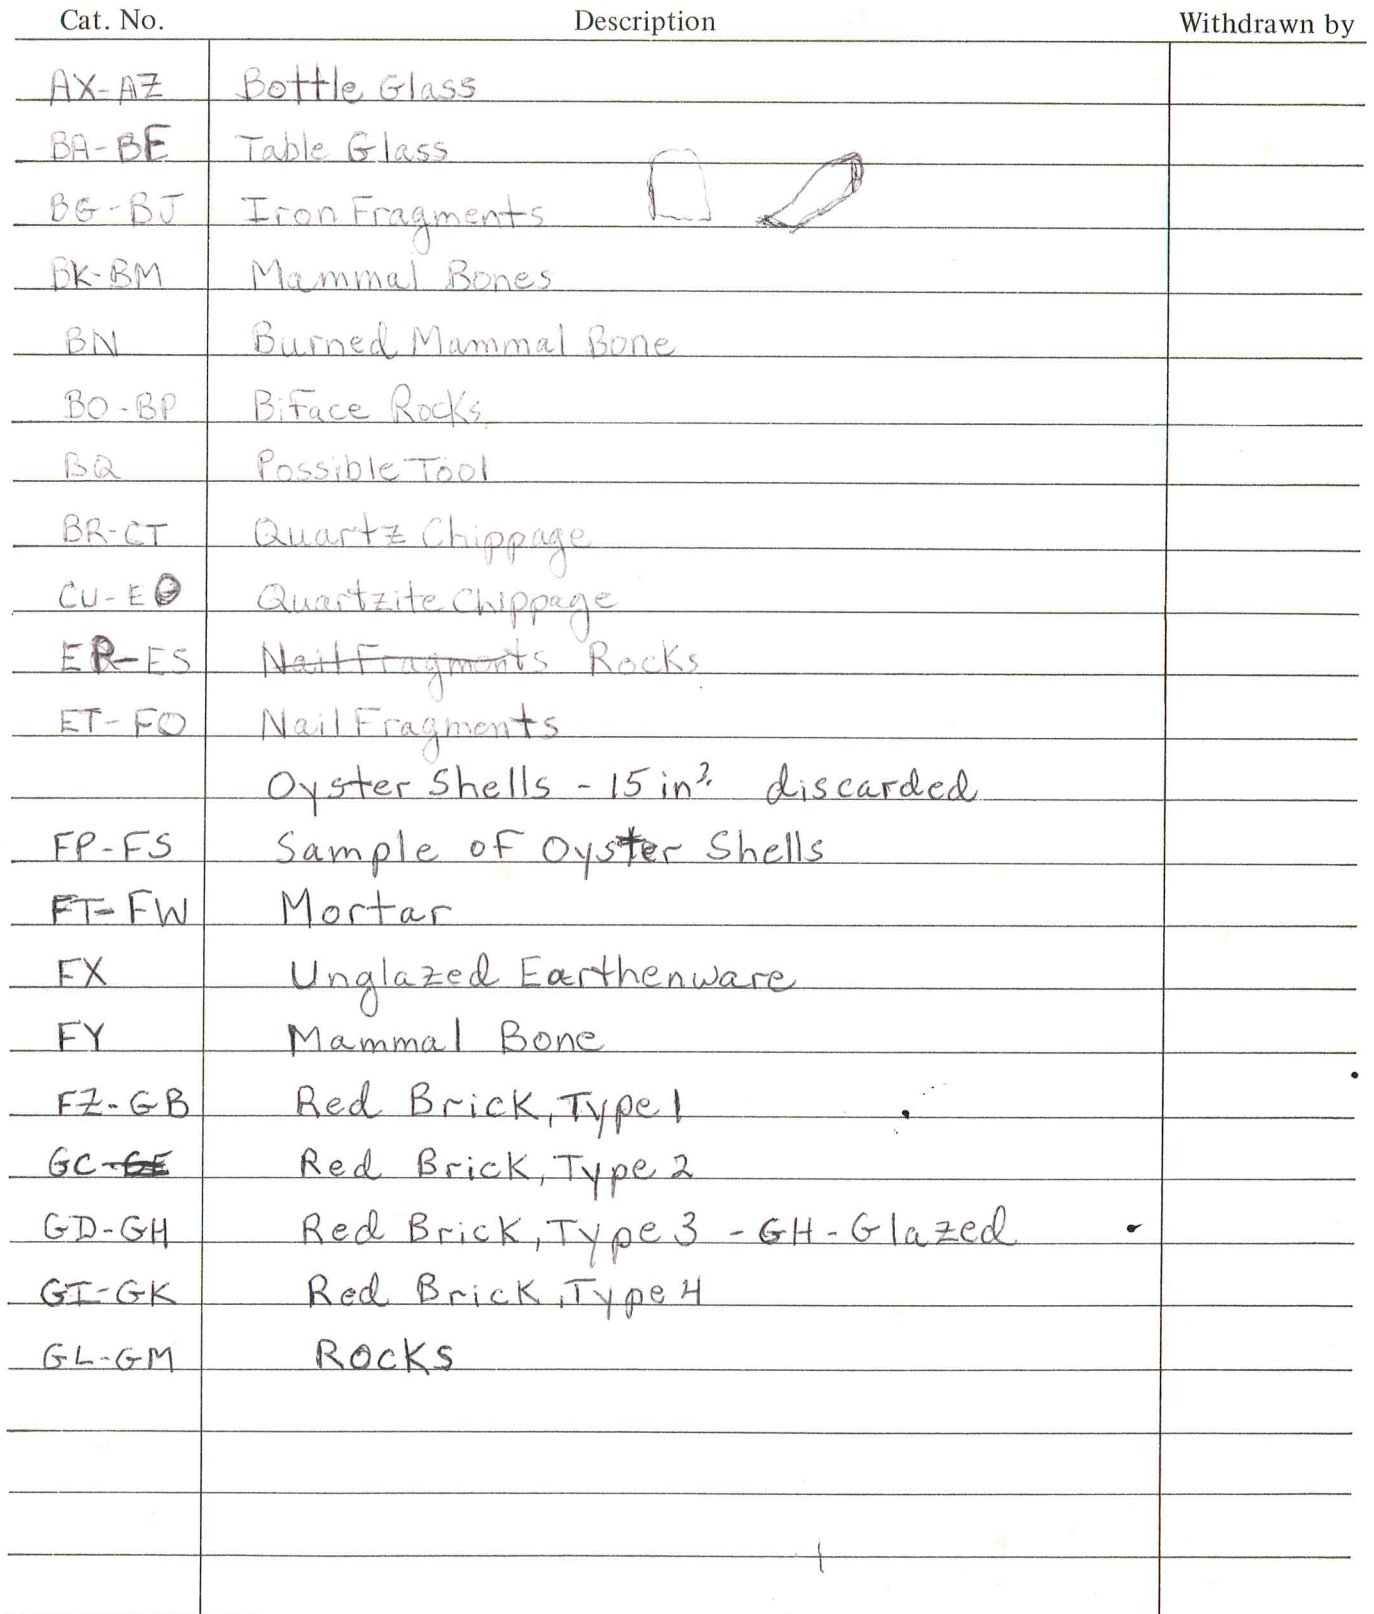 Cat. No. Description Withdrawn by
AX-AZ Bottle Glass
BA-BE Table Glass
BG-BJ Iron Fragments
BK-BM Mammal Bones
BN Burned Mammal Bone
BO-BP Biface Rocks
BQ Possible Tool
BR-CT Quartz Chippage
CU-E Quartzite Chippage
ER-ES Nail Fragments Rocks
ET-FO Nail Fragments
Oyster Shells - 15 in³. discarded
FP-FS Sample of Oyster Shells
FT-FW Mortar
FX Unglazed Earthenware
FY Mammal Bone
FZ-GB Red Brick, Type 1
GC-GE Red Brick, Type 2
GD-GH Red Brick, Type 3 - GH-Glazed
GI-GK Red Brick, Type 4
GL-GM Rocks